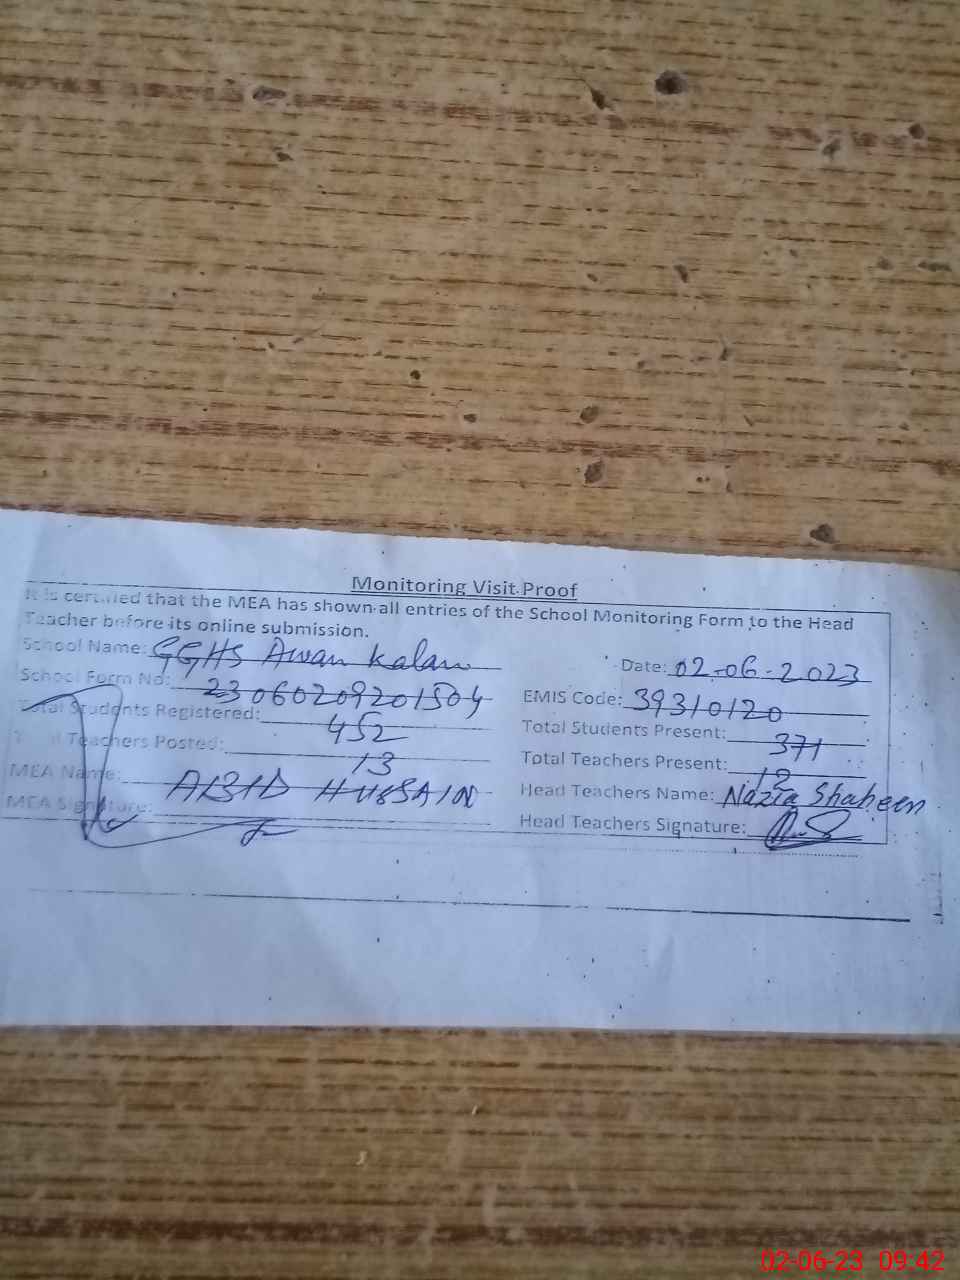 Monitoring Visit Proof
It is certified that the MEA has shown all entries of the School Monitoring Form to the Head
Teacher before its online submission.
School Name: GGHS Awan Kalan
Date: 02-06-2023
School Form No: 23060209201504
EMIS Code: 39310120
Total Students Registered: 452
Total Students Present: 371
Total Teachers Posted: 13
Total Teachers Present:
MEA Name: ABID HUSSAIN
Head Teachers Name: Nazia Shaheen
MEA Signature:
Head Teachers Signature:
02-06-23 09:42